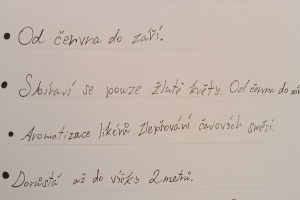 • Od června do září.
• Sbírají se pouze zlaté květy. Od června do zá
• Aromatizace likérů. Zlepšování čajových směsí.
• Dorůstá až do výšky 2 metrů.